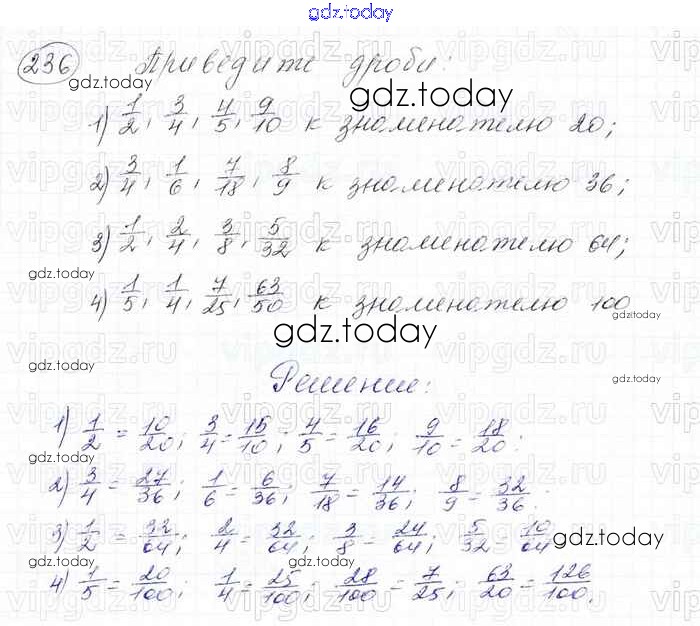 gdz.today
236 Приведите дроби:
gdz.today
gdz.today
1) 1/2, 3/4, 4/5, 9/10 к знаменателю 20;
2) 3/4, 1/6, 7/18, 8/9 к знаменателю 36;
3) 1/2, 2/4, 3/8, 5/32 к знаменателю 64;
gdz.today
4) 1/5, 1/4, 7/25, 63/50 к знаменателю 100
gdz.today
gdz.today
Решение:
gdz.today
1) 1/2 = 10/20; 3/4 = 15/10; 4/5 = 16/20; 9/10 = 18/20;
gdz.today
2) 3/4 = 27/36; 1/6 = 6/36; 7/18 = 14/36; 8/9 = 32/36;
3) 1/2 = 32/64; 2/4 = 32/64; 3/8 = 24/64; 5/32 10/64
gdz.today
gdz.today
4) 1/5 = 20/100; 1/4 = 25/100; 28/100 = 7/25; 63/20 = 126/100.